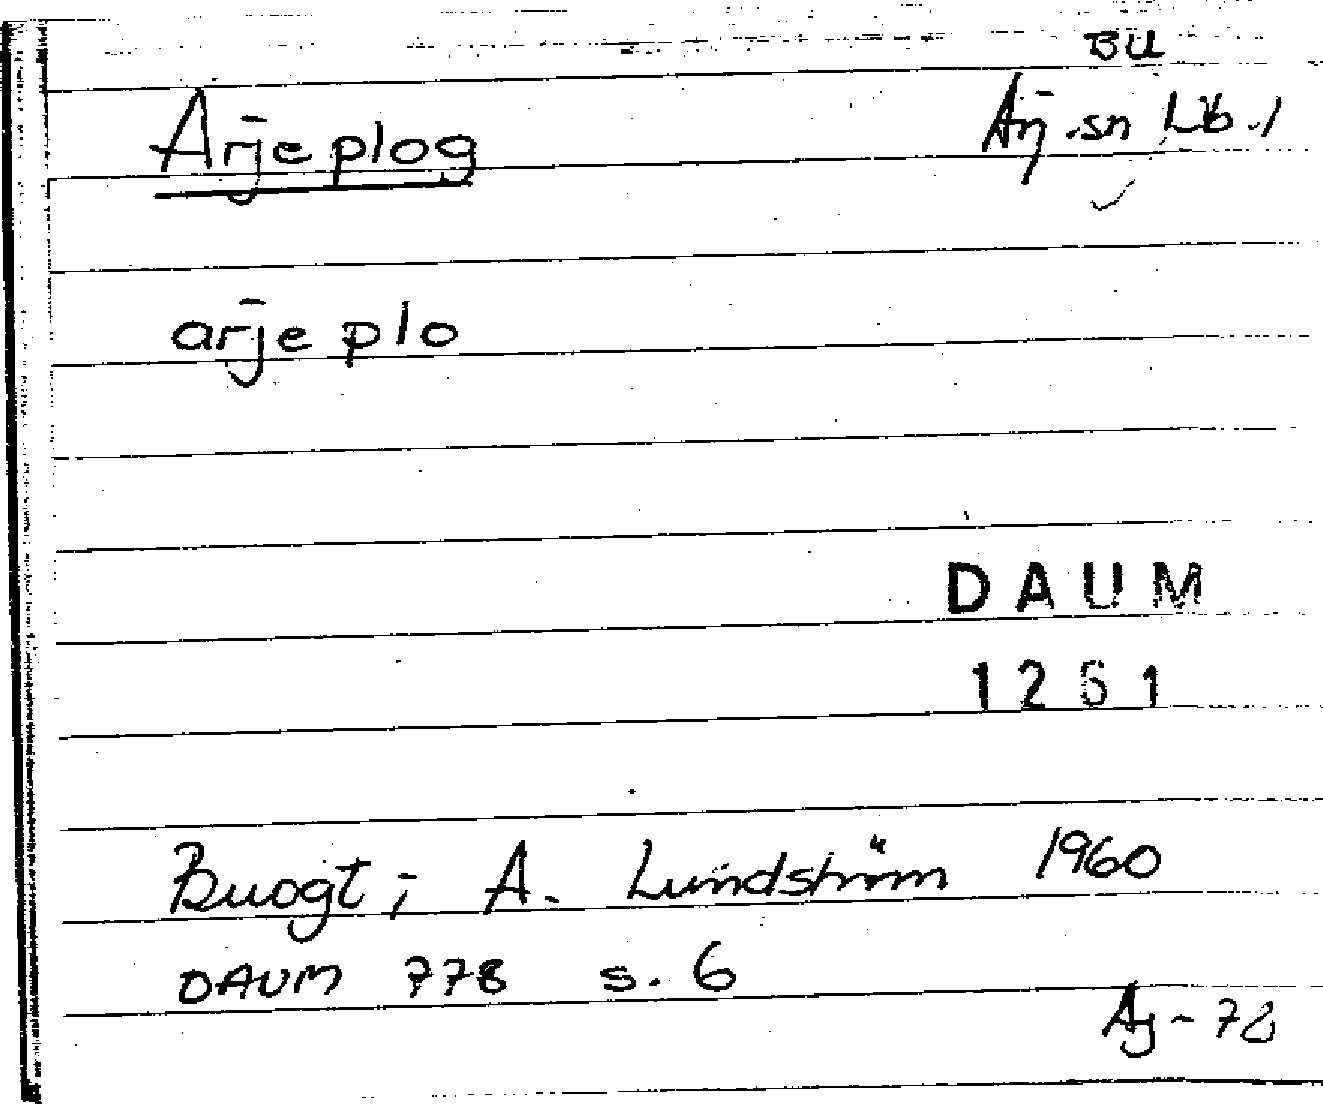 BU
Arjeplog
Arj.sn Lb.1
arjeplo
DAUM
1261
Buogt; A. Lundström 1960
DAUM 778 s. 6
Ag-78